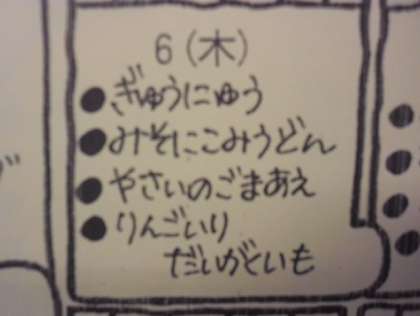 6(木)
●ぎゅうにゅう
●みそにこみうどん
●やさいのごまあえ
●りんごいり
だいがくいも